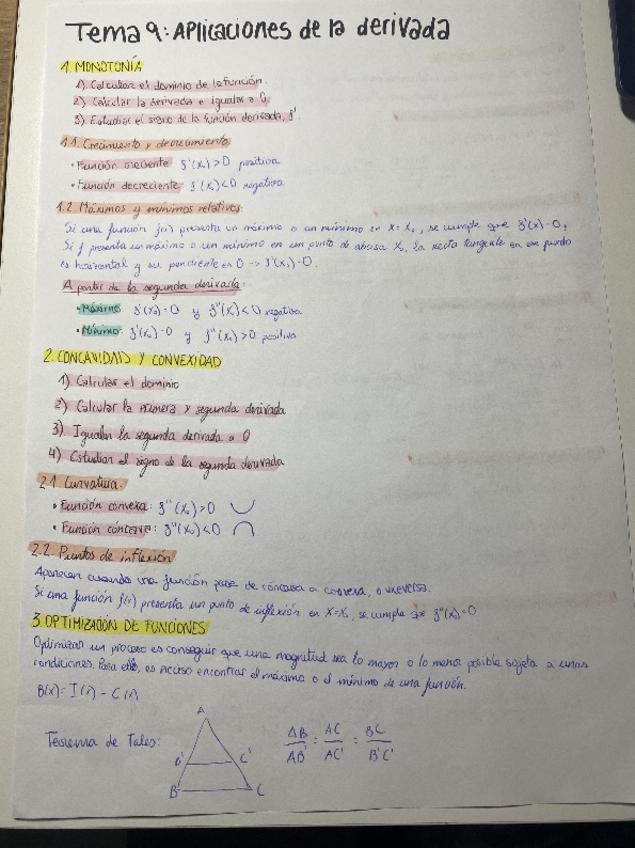 Tema 9: Aplicaciones de la derivada
1. MONOTONÍA
1) Calcular el dominio de la función.
2) Calcular la derivada e igualar a 0.
3) Estudiar el signo de la función derivada, f'.
1.1. Crecimiento y decrecimiento
• Función creciente: f'(x₀) > 0 positiva
• Función decreciente: f'(x₀) < 0 negativa
1.2. Máximos y mínimos relativos
Si una función f(x) presenta un máximo o un mínimo en x = x₀, se cumple que f'(x) = 0.
Si f presenta un máximo o un mínimo en un punto de abcisa x₀, la recta tangente en ese punto
es horizontal y su pendiente es 0 -> f'(x₀) = 0.
A partir de la segunda derivada:
• Máximo: f'(x₀) = 0 y f''(x₀) < 0 negativa
• Mínimo: f'(x₀) = 0 y f''(x₀) > 0 positiva
2. CONCAVIDAD Y CONVEXIDAD
1) Calcular el dominio
2) Calcular la primera y segunda derivada
3) Igualar la segunda derivada a 0
4) Estudiar el signo de la segunda derivada
2.1. Curvatura:
• Función convexa: f''(x₀) > 0
• Función cóncava: f''(x₀) < 0
2.2. Puntos de inflexión
Aparecen cuando una función pasa de cóncava a convexa, o viceversa.
Si una función f(x) presenta un punto de inflexión en x = x₀, se cumple que f''(x) = 0
3. OPTIMIZACIÓN DE FUNCIONES
Optimizar un proceso es conseguir que una magnitud sea lo mayor o lo menor posible sujeta a unas
condiciones. Para ello, es preciso encontrar el máximo o el mínimo de una función.
B(x) = I(x) - C(x)
Teorema de Tales:
A
B' C'
B C
AB/AB' = AC/AC' = BC/B'C'